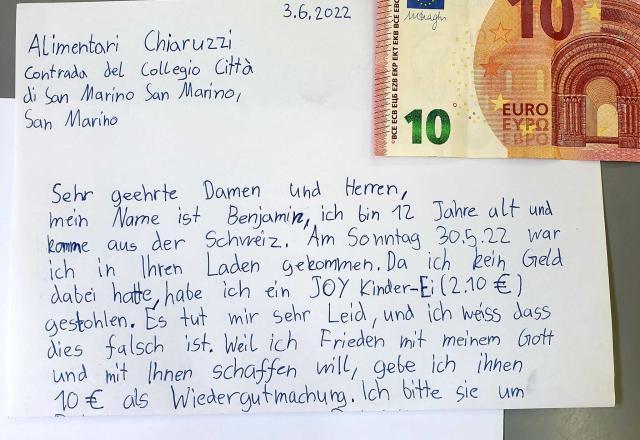 3.6.2022
Alimentari Chiaruzzi
Contrada del Collegio Città
di San Marino San Marino,
San Marino
10
BCE ECB ЕЦБ EZB EKP EKT EKB BCE EBC
10
EURO
ΕΥΡΩ
ЕВРО
Sehr geehrte Damen und Herren,
mein Name ist Benjamin, ich bin 12 Jahre alt und
komme aus der Schweiz. Am Sonntag 30.5.22 war
ich in Ihren Laden gekommen. Da ich kein Geld
dabei hatte, habe ich ein JOY Kinder-Ei (2.10 €)
gestohlen. Es tut mir sehr Leid, und ich weiss dass
dies falsch ist. Weil ich Frieden mit meinem Gott
und mit Ihnen schaffen will, gebe ich ihnen
10 € als Wiedergutmachung. Ich bitte sie um